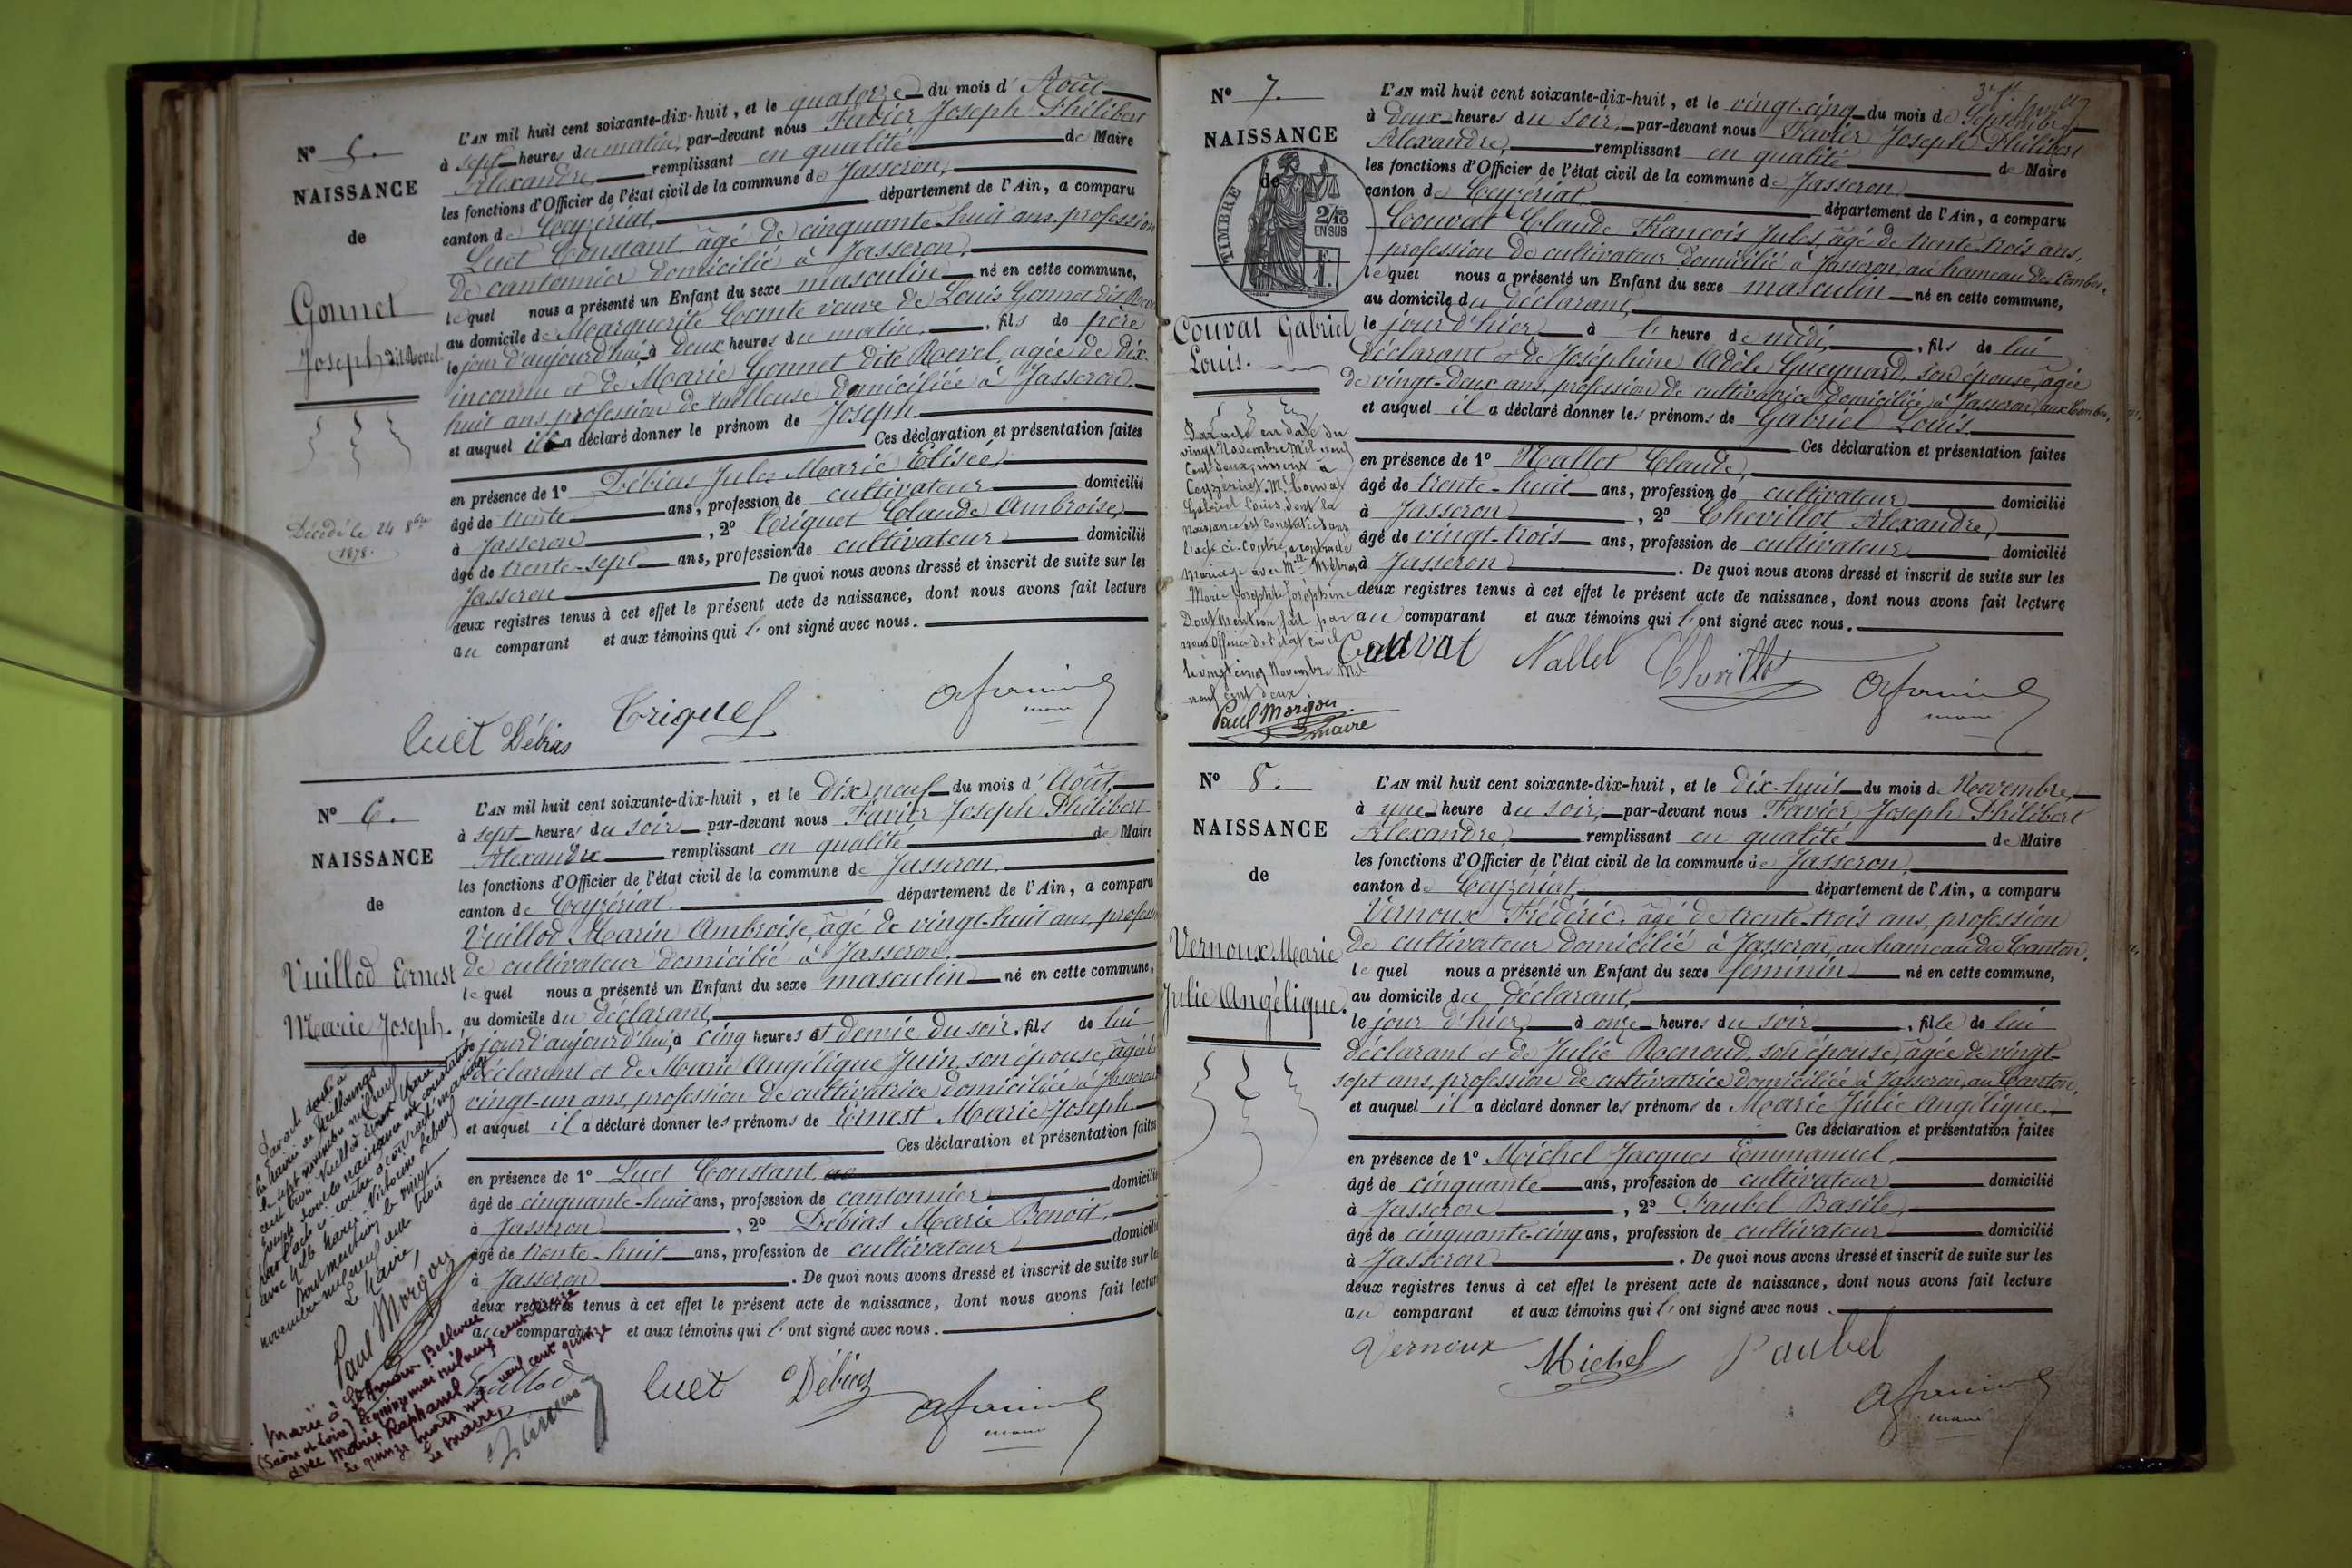 N° 5.
NAISSANCE
de
Gonnet
Joseph dit Revel.
Décédé le 24 8bre
1878.
L'AN mil huit cent soixante-dix-huit, et le quatorze du mois d'Août
à sept heures du matin, par-devant nous Favier Joseph Philibert
Alexandre, remplissant en qualité de Maire
les fonctions d'Officier de l'état civil de la commune de Jasseron,
canton de Ceyzériat, département de l'Ain, a comparu
Luet Constant âgé de cinquante-huit ans, profession
de cantonnier domicilié à Jasseron,
lequel nous a présenté un Enfant du sexe masculin né en cette commune,
au domicile de Marguerite Comte veuve de Louis Gonnet dit Revel
le jour d'aujourd'hui, à deux heures du matin, fils de père
inconnu et de Marie Gonnet dite Revel, agée de dix-
huit ans, profession de tailleuse domiciliée à Jasseron.
et auquel il a déclaré donner le prénom de Joseph.
Ces déclaration et présentation faites
en présence de 1° Débias Jules Marie Elisée,
âgé de trente ans, profession de cultivateur domicilié
à Jasseron, 2° Criquet Claude Ambroise,
âgé de trente-sept ans, profession de cultivateur domicilié
Jasseron De quoi nous avons dressé et inscrit de suite sur les
deux registres tenus à cet effet le présent acte de naissance, dont nous avons fait lecture
au comparant et aux témoins qui l'ont signé avec nous.
Luet Débias Criquet
maire
N° 6.
NAISSANCE
de
Vuillod Ernest
Marie Joseph.
L'AN mil huit cent soixante-dix-huit, et le dix neuf du mois d'Août,
à sept heures du soir par-devant nous Favier Joseph Philibert
Alexandre remplissant en qualité de Maire
les fonctions d'Officier de l'état civil de la commune de Jasseron,
canton de Ceyzériat, département de l'Ain, a comparu
Vuillod Marin Ambroise, âgé de vingt-huit ans, profession
de cultivateur domicilié à Jasseron,
lequel nous a présenté un Enfant du sexe masculin né en cette commune,
au domicile du déclarant,
jour d'aujourd'hui, à cinq heures et demie du soir, fils de lui
déclarant et de Marie Angélique Juin, son épouse, âgée
vingt-un ans, profession de cultivatrice domiciliée à Jasseron
et auquel il a déclaré donner les prénoms de Ernest Marie Joseph.
Ces déclaration et présentation faites
en présence de 1° Luet Constant,
âgé de cinquante-huit ans, profession de cantonnier domicilié
à Jasseron, 2° Débias Marie Benoit,
âgé de trente-huit ans, profession de cultivateur domicilié
à Jasseron. De quoi nous avons dressé et inscrit de suite sur les
deux registres tenus à cet effet le présent acte de naissance, dont nous avons fait lecture
au comparant et aux témoins qui l'ont signé avec nous.
le sept novembre mil neuf
cent trois Vuillod Ernest Marie
Joseph dont la naissance est constatée
par l'acte ci-contre a contracté mariage
Dont mention le neuf
novembre mil neuf cent trois
Le Maire,
Paul Morgon
Marié à St Amour-Bellevue
(Saône et Loire) le quinze mai mil neuf cent treize
avec Marie Raphanel
Le quinze mars mil neuf cent quinze
Le Maire,
Vuillod Luet Débias
maire
N° 7.
NAISSANCE
de
TIMBRE
2/10
EN SUS
Couvat Gabriel
Louis.
Par acte en date du
vingt Novembre Mil neuf
Cent deux, inscrit à
Ceyzeriat, Mr Couvat
Gabriel Louis, dont la
naissance est constatée dans
l'acte ci-contre, a contracté
Mariage avec Melle Mébras
Marie Josephte Joséphine
Dont Mention fait par
nous Officier de l'état Civil
le vingt cinq Novembre Mil
neuf cent deux
Paul Morgon
maire
L'AN mil huit cent soixante-dix-huit, et le vingt-cinq du mois de Septembre
à deux heures du soir, par-devant nous Favier Joseph Philibert
Alexandre, remplissant en qualité de Maire
les fonctions d'Officier de l'état civil de la commune de Jasseron
canton de Ceyzériat département de l'Ain, a comparu
Couvat Claude François Jules, âgé de trente-trois ans,
profession de cultivateur domicilié à Jasseron au hameau des Combes,
lequel nous a présenté un Enfant du sexe masculin né en cette commune,
au domicile du déclarant,
le jour d'hier, à l'heure de midi, fils de lui
déclarant et de Joséphine Adèle Gueynard, son épouse, agée
de vingt-deux ans, profession de cultivatrice domiciliée à Jasseron, aux Combes,
et auquel il a déclaré donner les prénoms de Gabriel Louis.
Ces déclaration et présentation faites
en présence de 1° Nallet Claude,
âgé de trente-huit ans, profession de cultivateur domicilié
à Jasseron, 2° Chevillot Alexandre,
âgé de vingt-trois ans, profession de cultivateur domicilié
à Jasseron. De quoi nous avons dressé et inscrit de suite sur les
deux registres tenus à cet effet le présent acte de naissance, dont nous avons fait lecture
au comparant et aux témoins qui l'ont signé avec nous.
Couvat Nallet Chevillot
maire
N° 8.
NAISSANCE
de
Vernoux Marie
Julie Angélique.
L'AN mil huit cent soixante-dix-huit, et le dix-huit du mois de Novembre,
à une heure du soir, par-devant nous Favier Joseph Philibert
Alexandre, remplissant en qualité de Maire
les fonctions d'Officier de l'état civil de la commune de Jasseron,
canton de Ceyzériat, département de l'Ain, a comparu
Vernoux Frédéric, âgé de trente-trois ans, profession
de cultivateur domicilié à Jasseron, au hameau du Canton,
lequel nous a présenté un Enfant du sexe féminin né en cette commune,
au domicile du déclarant,
le jour d'hier, à onze heures du soir, fille de lui
déclarant et de Julie Renoud, son épouse, âgée de vingt-
sept ans, profession de cultivatrice domiciliée à Jasseron, au Canton,
et auquel il a déclaré donner les prénoms de Marie Julie Angélique.
Ces déclaration et présentation faites
en présence de 1° Michel Jacques Emmanuel,
âgé de cinquante ans, profession de cultivateur domicilié
à Jasseron, 2° Paubel Basile,
âgé de cinquante-cinq ans, profession de cultivateur domicilié
à Jasseron. De quoi nous avons dressé et inscrit de suite sur les
deux registres tenus à cet effet le présent acte de naissance, dont nous avons fait lecture
au comparant et aux témoins qui l'ont signé avec nous.
Vernoux Michel Paubel
maire